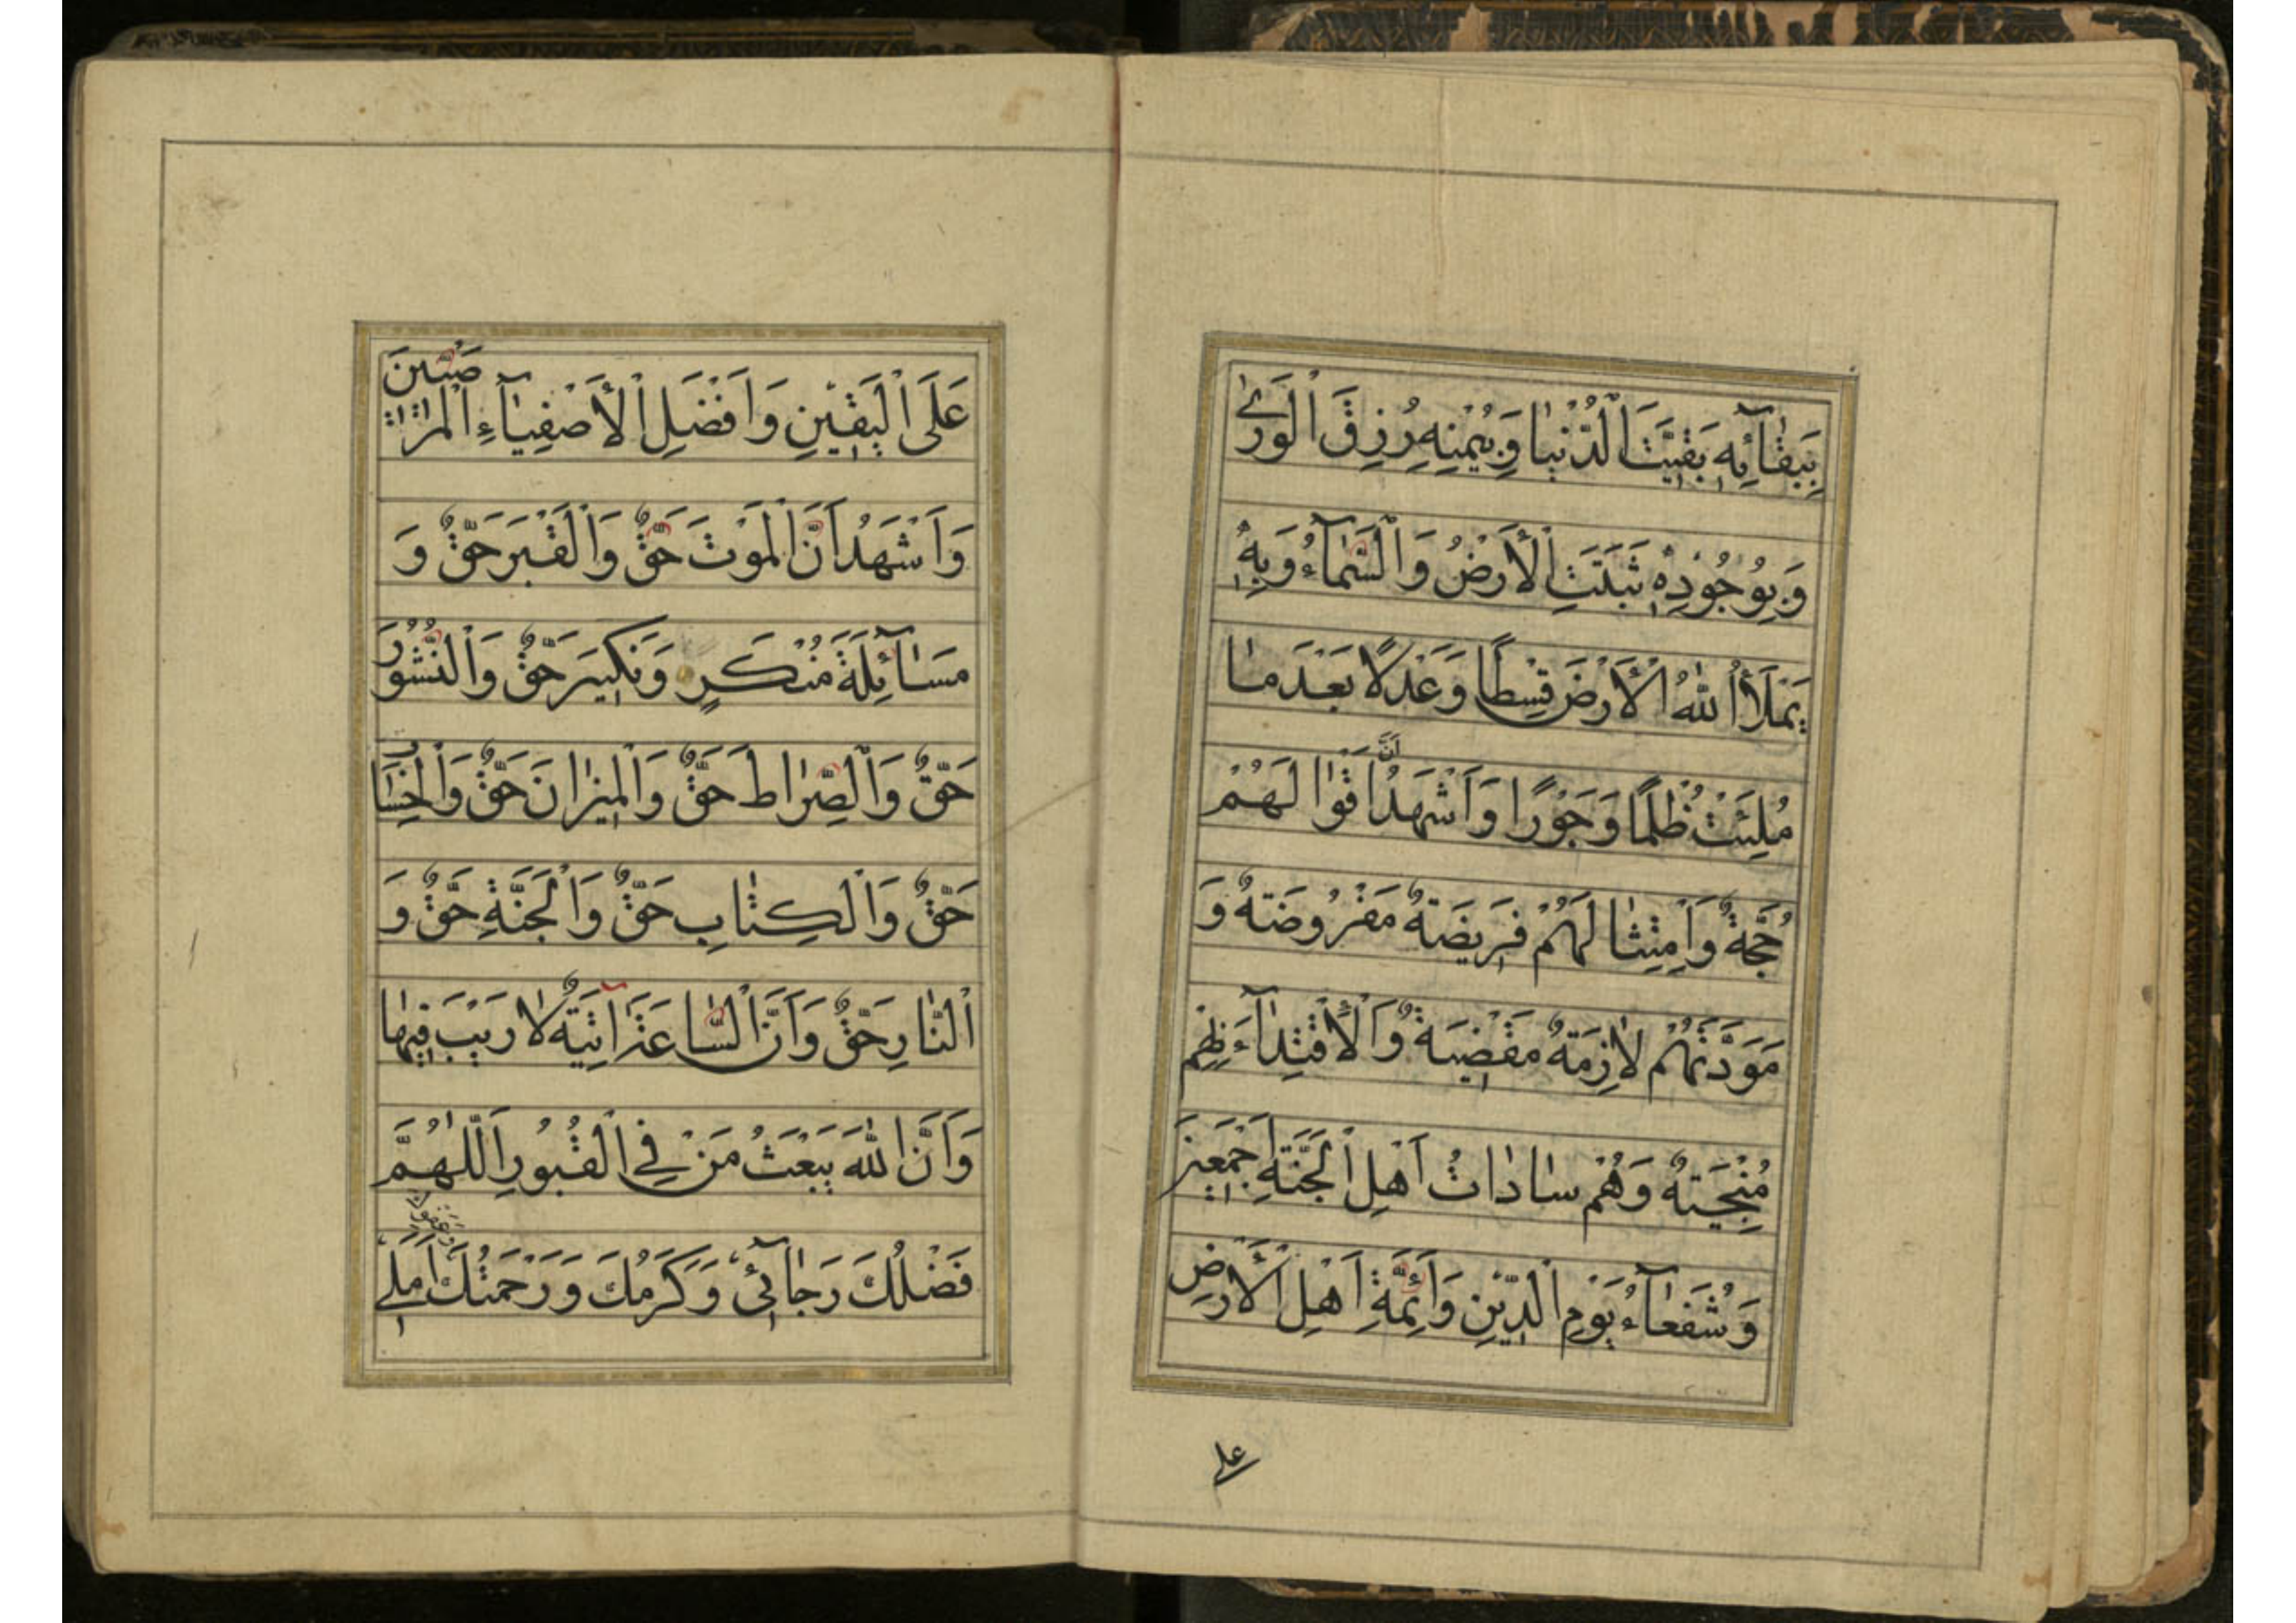 بِبَقٰائِهِ بَقِيَتِ الدُّنْيٰا وَبِيُمْنِهِ رُزِقَ الْوَرىٰ
وَبِوُجُودِهِ ثَبَتَتِ الْأَرْضُ وَالسَّمٰآءُ وَبِهِ
يَمْلَأُ اللّٰهُ الْأَرْضَ قِسْطًا وَعَدْلًا بَعْدَ مٰا
مُلِئَتْ ظُلْمًا وَجَوْرًا وَاَشْهَدُ اَنَّ اَقْوٰالَهُمْ
حُجَّةٌ وَاِمْتِثٰالَهُمْ فَرِيضَةٌ مَفْرُوضَةٌ وَ
مَوَدَّتَهُمْ لٰازِمَةٌ مَقْضِيَةٌ وَالْاِقْتِدٰآءَ بِهِمْ
مُنْجِيَةٌ وَهُمْ سٰادٰاتُ اَهْلِ الْجَنَّةِ اَجْمَعِينَ
وَشُفَعٰآءُ يَوْمِ الدِّينِ وَاَئِمَّةِ اَهْلِ الْأَرْضِ
على
عَلَى الْيَقِينِ وَاَفْضَلِ الْأَصْفِيٰآءِ الْمَرْضِيِّينَ
وَاَشْهَدُ اَنَّ الْمَوْتَ حَقٌّ وَالْقَبْرَ حَقٌّ وَ
مَسٰآئِلَةَ مُنْكَرٍ وَنَكِيرَ حَقٌّ وَالنُّشُورَ
حَقٌّ وَالصِّرٰاطَ حَقٌّ وَالْمِيزٰانَ حَقٌّ وَالْحِسٰابَ
حَقٌّ وَالْكِتٰابِ حَقٌّ وَالْجَنَّةِ حَقٌّ وَ
النّٰارِ حَقٌّ وَاَنَّ السّٰاعَةَ اٰتِيَةٌ لٰا رَيْبَ فِيهٰا
وَاَنَّ اللّٰهَ يَبْعَثُ مَنْ فِي الْقُبُورِ اَللّٰهُمَّ
فَضْلُكَ رَجٰآئِي وَكَرَمُكَ وَرَحْمَتُكَ اَمَلِي